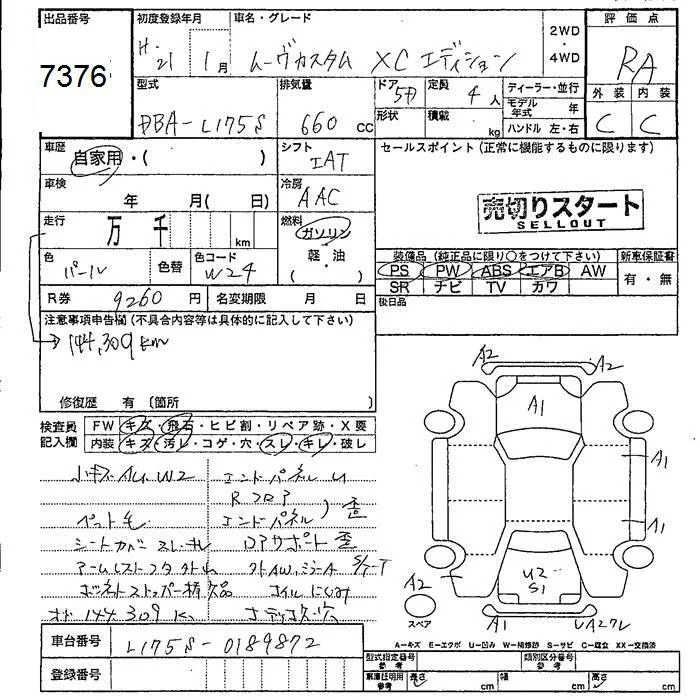 出品番号
7376
初度登録年月
H.21 1月
車名・グレード
ムーヴカスタム XC エディション
2WD・4WD
評価点
RA
外装 内装
C C
型式
DBA-L175S
排気量
660 cc
ドア 5D
形状
定員 4人
積載 kg
ディーラー・並行
モデル年式 年
ハンドル 左・右
車歴 自家用・( )
シフト
IAT
セールスポイント(正常に機能するものに限ります)
車検 年 月(日)
冷房
AAC
売切りスタート
SELLOUT
走行 万 千 km
燃料
ガソリン
軽・油
( )
色
パール
色替
色コード
W24
装備品(純正品に限り○をつけて下さい)
新車保証書
PS PW ABS エアB AW
有・無
SR ナビ TV カワ
R券 9260円
名変期限 月 日
後日品
注意事項申告欄(不具合内容等は具体的に記入して下さい)
144,309km
修復歴 有(箇所
検査員記入欄
FW キズ・飛石・ヒビ割・リペア跡・X要
内装 キズ・汚レ・コゲ・穴・スレ・キレ・破レ
小キズ AU W2
エンドパネル U
Rフロア
ペット毛
エンドパネル 歪
シートカバー スレ キレ
コアサポート 歪
アームレスト
ボンネットストッパー 欠品
コイルにじみ
144309K
車台番号 L175S-0189872
登録番号
A2 A2
A1
A1
A1
U2
S1
A2
スペア
A1 UA2
A-キズ E-エクボ U-凹み W-補修跡 S-サビ C-腐食 XX-交換済
型式指定番号 参考
類別区分番号 参考
車庫証明用 参考 長さ cm 幅 cm 高さ cm